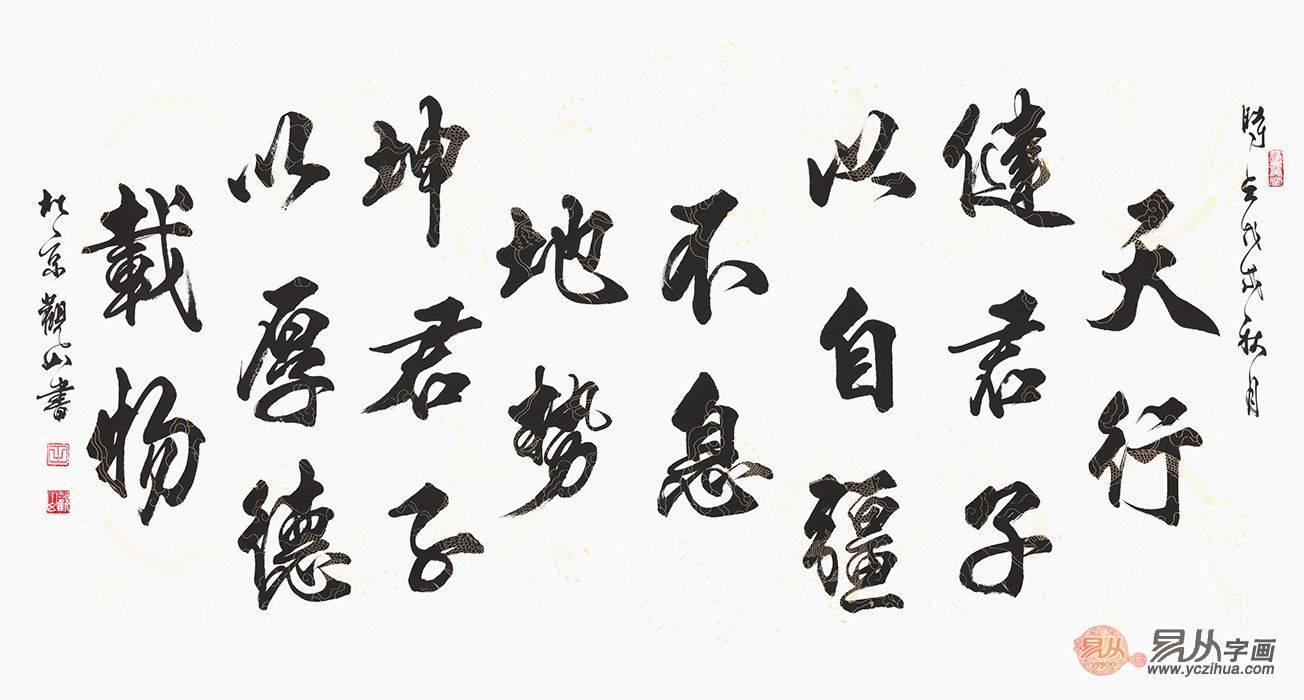 時在戊戌秋月
天行
健君子
以自彊
不息
地勢
坤君子
以厚德
載物
於京觀山書
易从
yejon
易从字画
www.yczihua.com